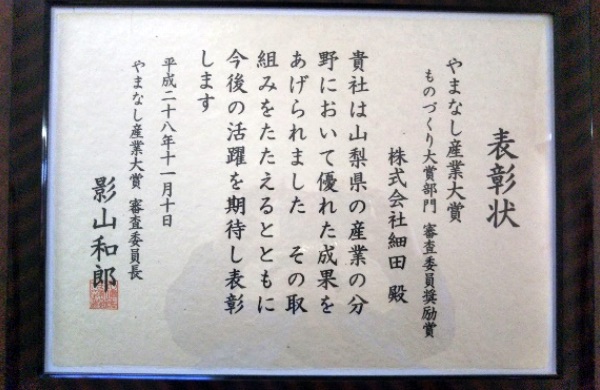 表彰状
やまなし産業大賞
ものづくり大賞部門 審査委員奨励賞
株式会社細田 殿
貴社は山梨県の産業の分
野において優れた成果を
あげられました その取
組みをたたえるとともに
今後の活躍を期待し表彰
します
平成二十八年十一月十日
やまなし産業大賞 審査委員長
影山和郎